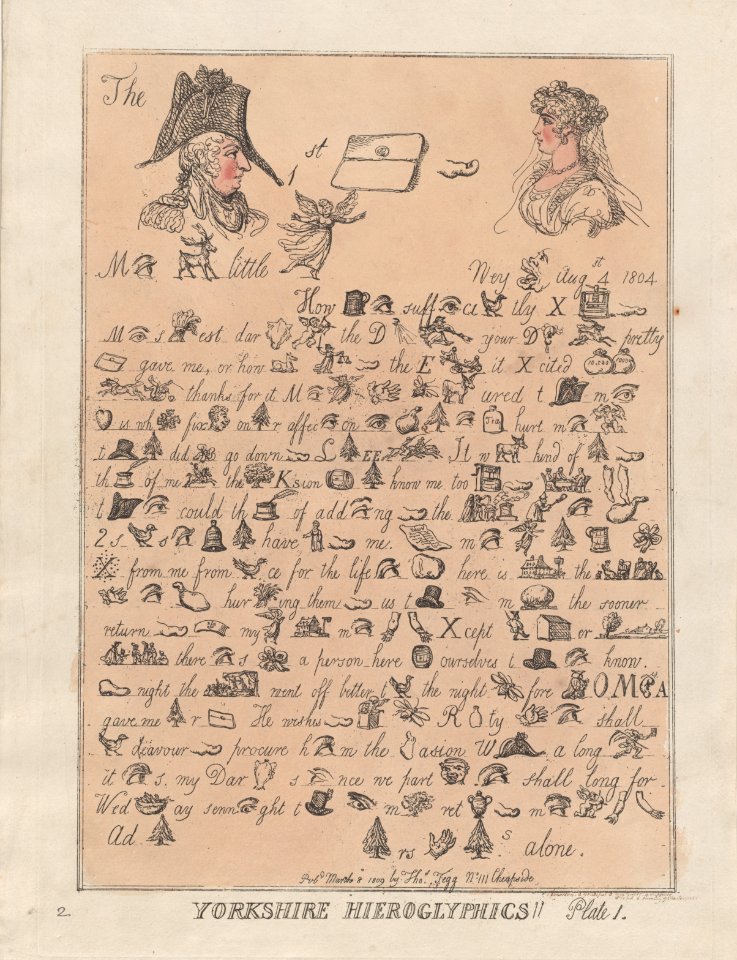 The
1st
M little
Wey Aug st 4 1804
How suff ce tly X
M s est dar the D your D pretty
gave me, or how the E it X cited
thanks for it M cured t m
is wh fix on r affec on Tea hurt m
t did go down L It w kind of
th of me the K sion know me too
t could th of add ng the
2 s s have me. m
X from me from ce for the life here is the
hur ing them us t m the sooner
return my m Xcept er
there s a person here ourselves t know.
night the went off better t the night fore OMP A
gave me r He wishes R ty shall
deavour procure h m the asion W a long
it s. my Dar s nce we part shall long for
Wed ay senn ght t m ret m
Ad rs s alone.
Pub.d March 8 1809 by Tho.s Tegg No 111 Cheapside
2 YORKSHIRE HIEROGLYPHICS!! Plate 1.